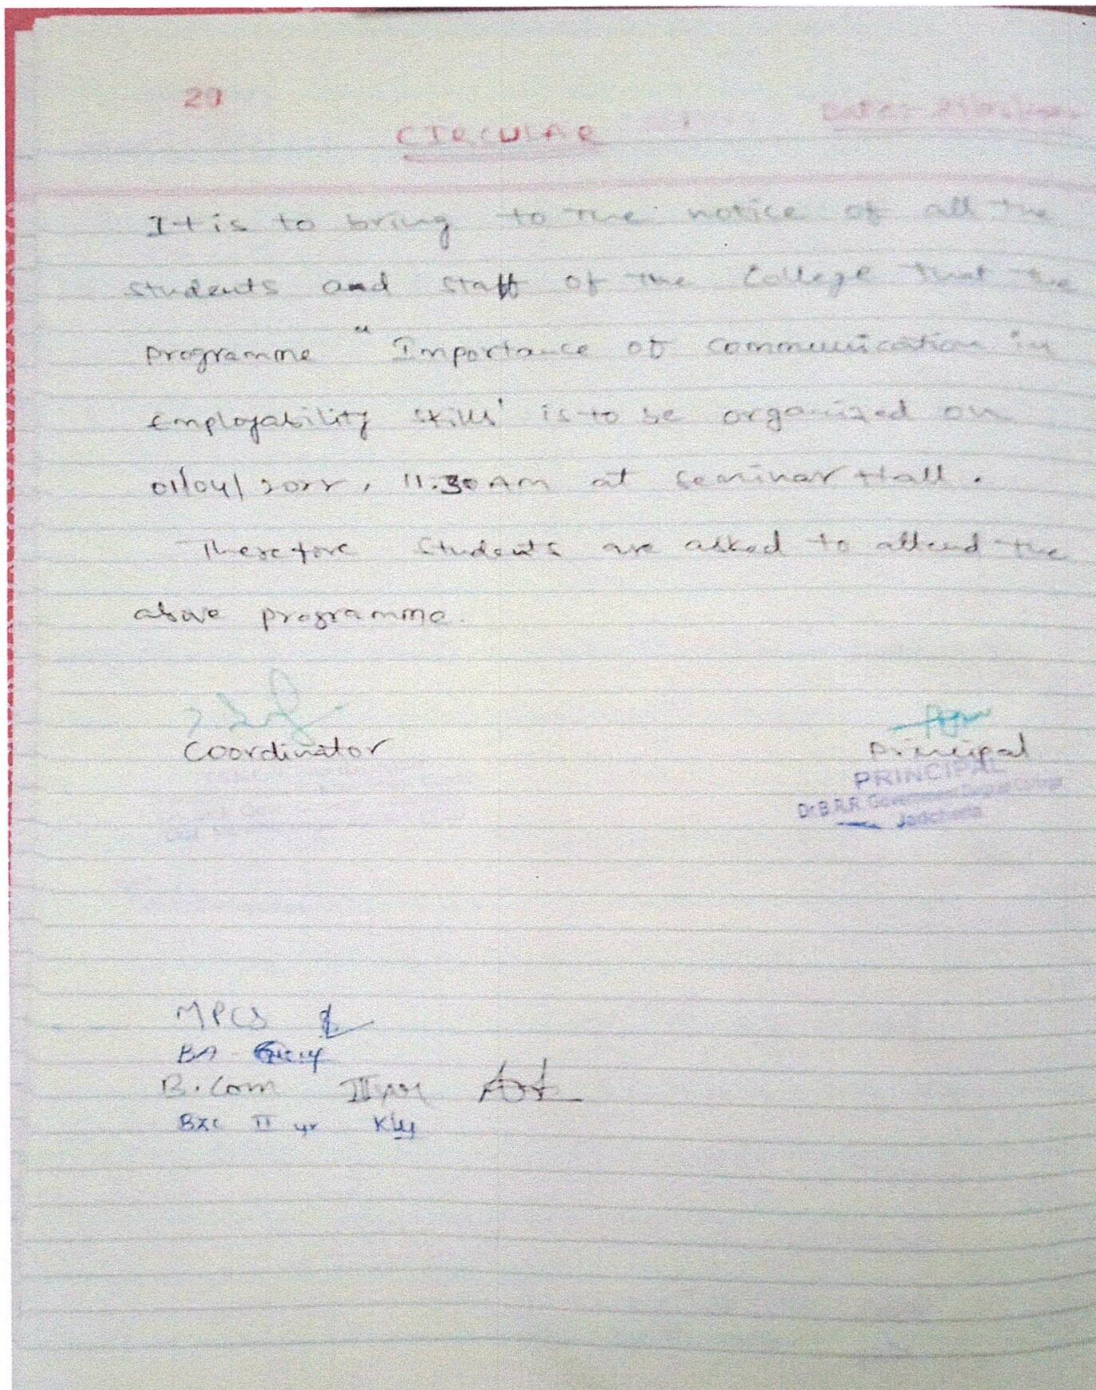 29
CIRCULAR
Date:
It is to bring to the notice of all the
students and staff of the College that the
programme "Importance of communication in
Employability skills' is to be organized on
01/04/2022, 11.30 AM at Seminar Hall.
Therefore students are asked to attend the
above programme.
Coordinator
Principal
PRINCIPAL
Dr.B.R.R. Government Degree College
Jadcherla
MPCS
BA
B.Com II yr
BZC II yr